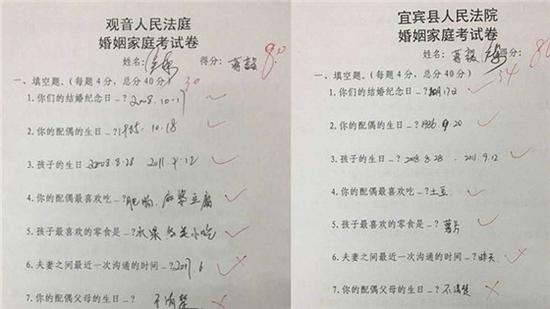 观音人民法庭
婚姻家庭考试卷
姓名: 得分:
90
一、填空题、(每题 4 分,总分 40 分) 30
1.你们的结婚纪念日_? 2008.10.17
2.你的配偶的生日_? 1985.10.18
3.孩子的生日_? 2008.8.28 2011.9.12
4.你的配偶最喜欢吃_? 肥肠、麻婆豆腐
5.孩子最喜欢的零食是_? 水果
6.夫妻之间最近一次沟通的时间_? 2017.6
7.你的配偶父母的生日_? 不清楚
宜宾县人民法院
婚姻家庭考试卷
姓名: 得分: 86
一、填空题、(每题 4 分,总分 40 分) 34
1.你们的结婚纪念日_?
2.你的配偶的生日_? 1986.9.20
3.孩子的生日_? 2008.8.28 2011.9.12
4.你的配偶最喜欢吃_? 土豆
5.孩子最喜欢的零食是_? 薯片
6.夫妻之间最近一次沟通的时间_? 昨天
7.你的配偶父母的生日_? 不清楚